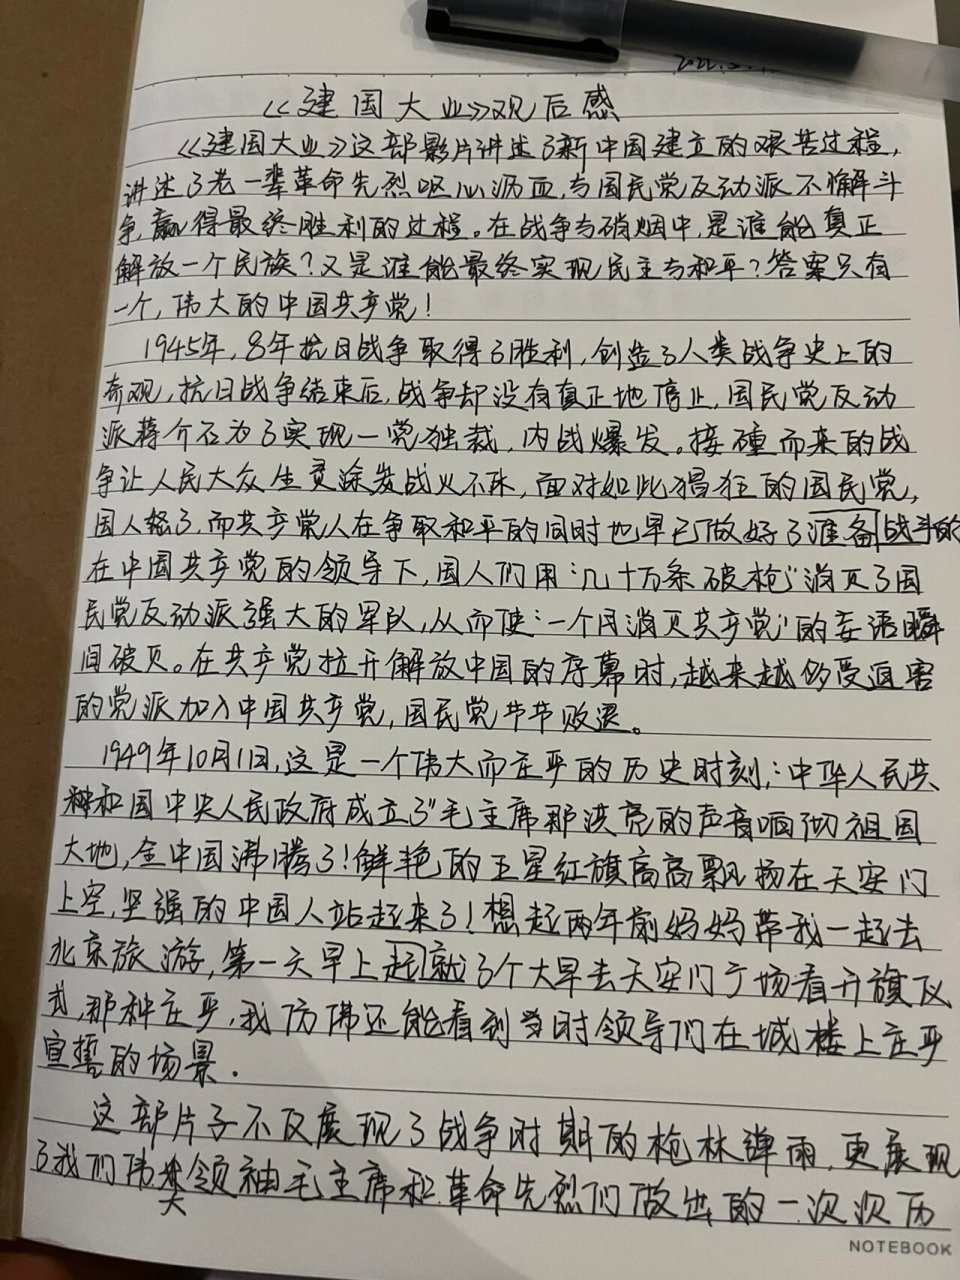 《建国大业》观后感
《建国大业》这部影片讲述了新中国建立的艰苦过程,
讲述了老一辈革命先烈呕心沥血,与国民党反动派不懈斗
争,赢得最终胜利的过程。在战争与硝烟中,是谁能真正
解放一个民族?又是谁能最终实现民主与和平?答案只有
一个,伟大的中国共产党!
1945年,8年抗日战争取得了胜利,创造了人类战争史上的
奇观,抗日战争结束后,战争却没有真正地停止,国民党反动
派蒋介石为了实现一党独裁,内战爆发。接踵而来的战
争让人民大众生灵涂炭战火不休,面对如此猖狂的国民党,
国人怒了,而共产党人在争取和平的同时也早已做好了准备战斗的
在中国共产党的领导下,国人们用“几十万条破枪”消灭了国
民党反动派强大的军队,从而使“一个月消灭共产党”的妄语瞬
间破灭。在共产党拉开解放中国的序幕时,越来越多受迫害
的党派加入中国共产党,国民党节节败退。
1949年10月1日,这是一个伟大而庄严的历史时刻,“中华人民共
和国中央人民政府成立了”毛主席那洪亮的声音响彻祖国
大地,全中国沸腾了!鲜艳的五星红旗高高飘扬在天安门
上空,坚强的中国人站起来了!想起两年前妈妈带我一起去
北京旅游,第一天早上起就了个大早去天安门广场看升旗仪
式,那种庄严,我仿佛还能看到当时领导们在城楼上庄严
宣誓的场景.
这部片子不仅展现了战争时期的枪林弹雨,更展现
了我们伟大领袖毛主席和革命先烈们做出的一次次历
NOTEBOOK